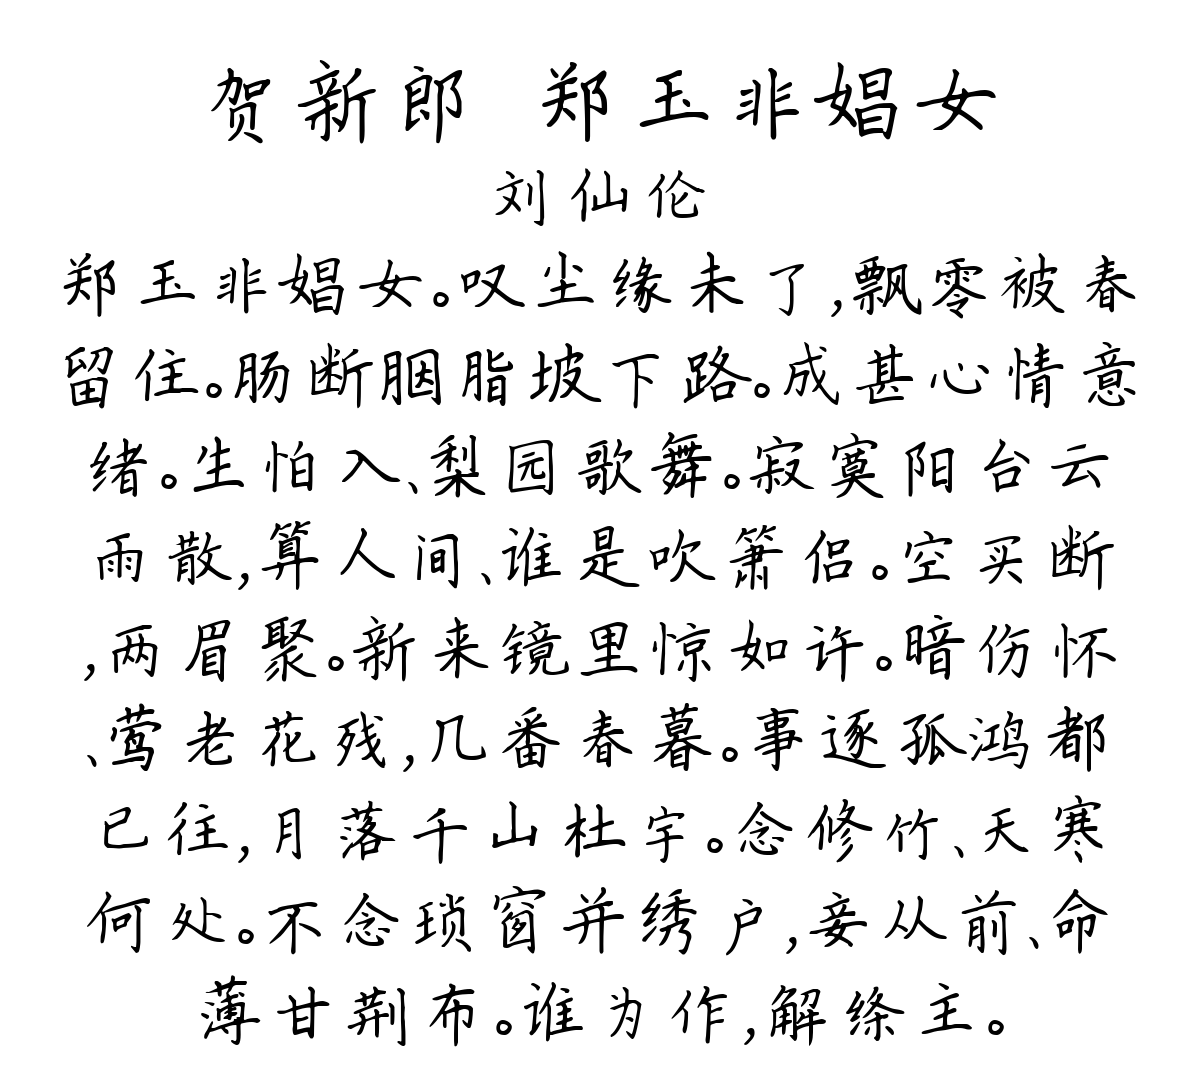 贺新郎 郑玉非娼女
刘仙伦
郑玉非娼女。叹尘缘未了,飘零被春
留住。肠断胭脂坡下路。成甚心情意
绪。生怕入、梨园歌舞。寂寞阳台云
雨散,算人间、谁是吹箫侣。空买断
,两眉聚。新来镜里惊如许。暗伤怀
、莺老花残,几番春暮。事逐孤鸿都
已往,月落千山杜宇。念修竹、天寒
何处。不念琐窗并绣户,妾从前、命
薄甘荆布。谁为作,解绦主。